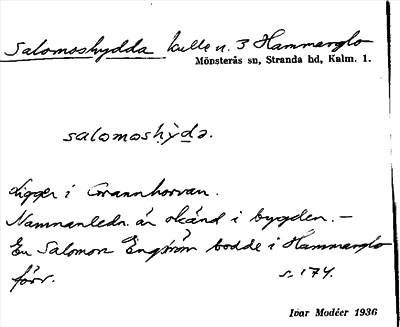 Salomoshydda kulle n. 3 Hammarglo
Mönsterås sn, Stranda hd, Kalm. l.
salomoshỳdə.
Ligger i Grannhorvan.
Namnanledn. är okänd i bygden. —
En Salomon Engström bodde i Hammarglo
förr. s. 174.
Ivar Modéer 1936